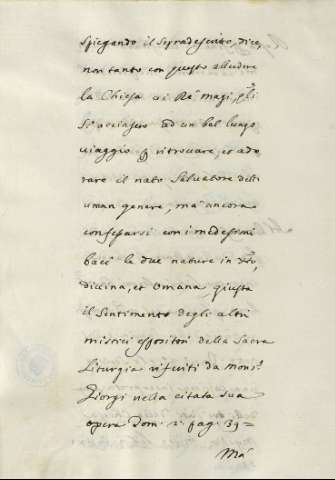 spiegando il sopradescritto, dice,
non tanto con questo alludere
la Chiesa ai Rè magi, qli
si acciasero ad un bel lungo
viaggio p ritrovare, et ado
rare il nato Salvatore dell
uman genere, mà ancora
confessarsi con i medesimi
baci le due nature in Xto,
divina, et Umana, giusta
il Sentimento degli altri
mistici espositori della Sacra
Liturgia riferiti da monsr
Giorgi nella citata sua
opera Dom. 2. pag. 39=
Mà